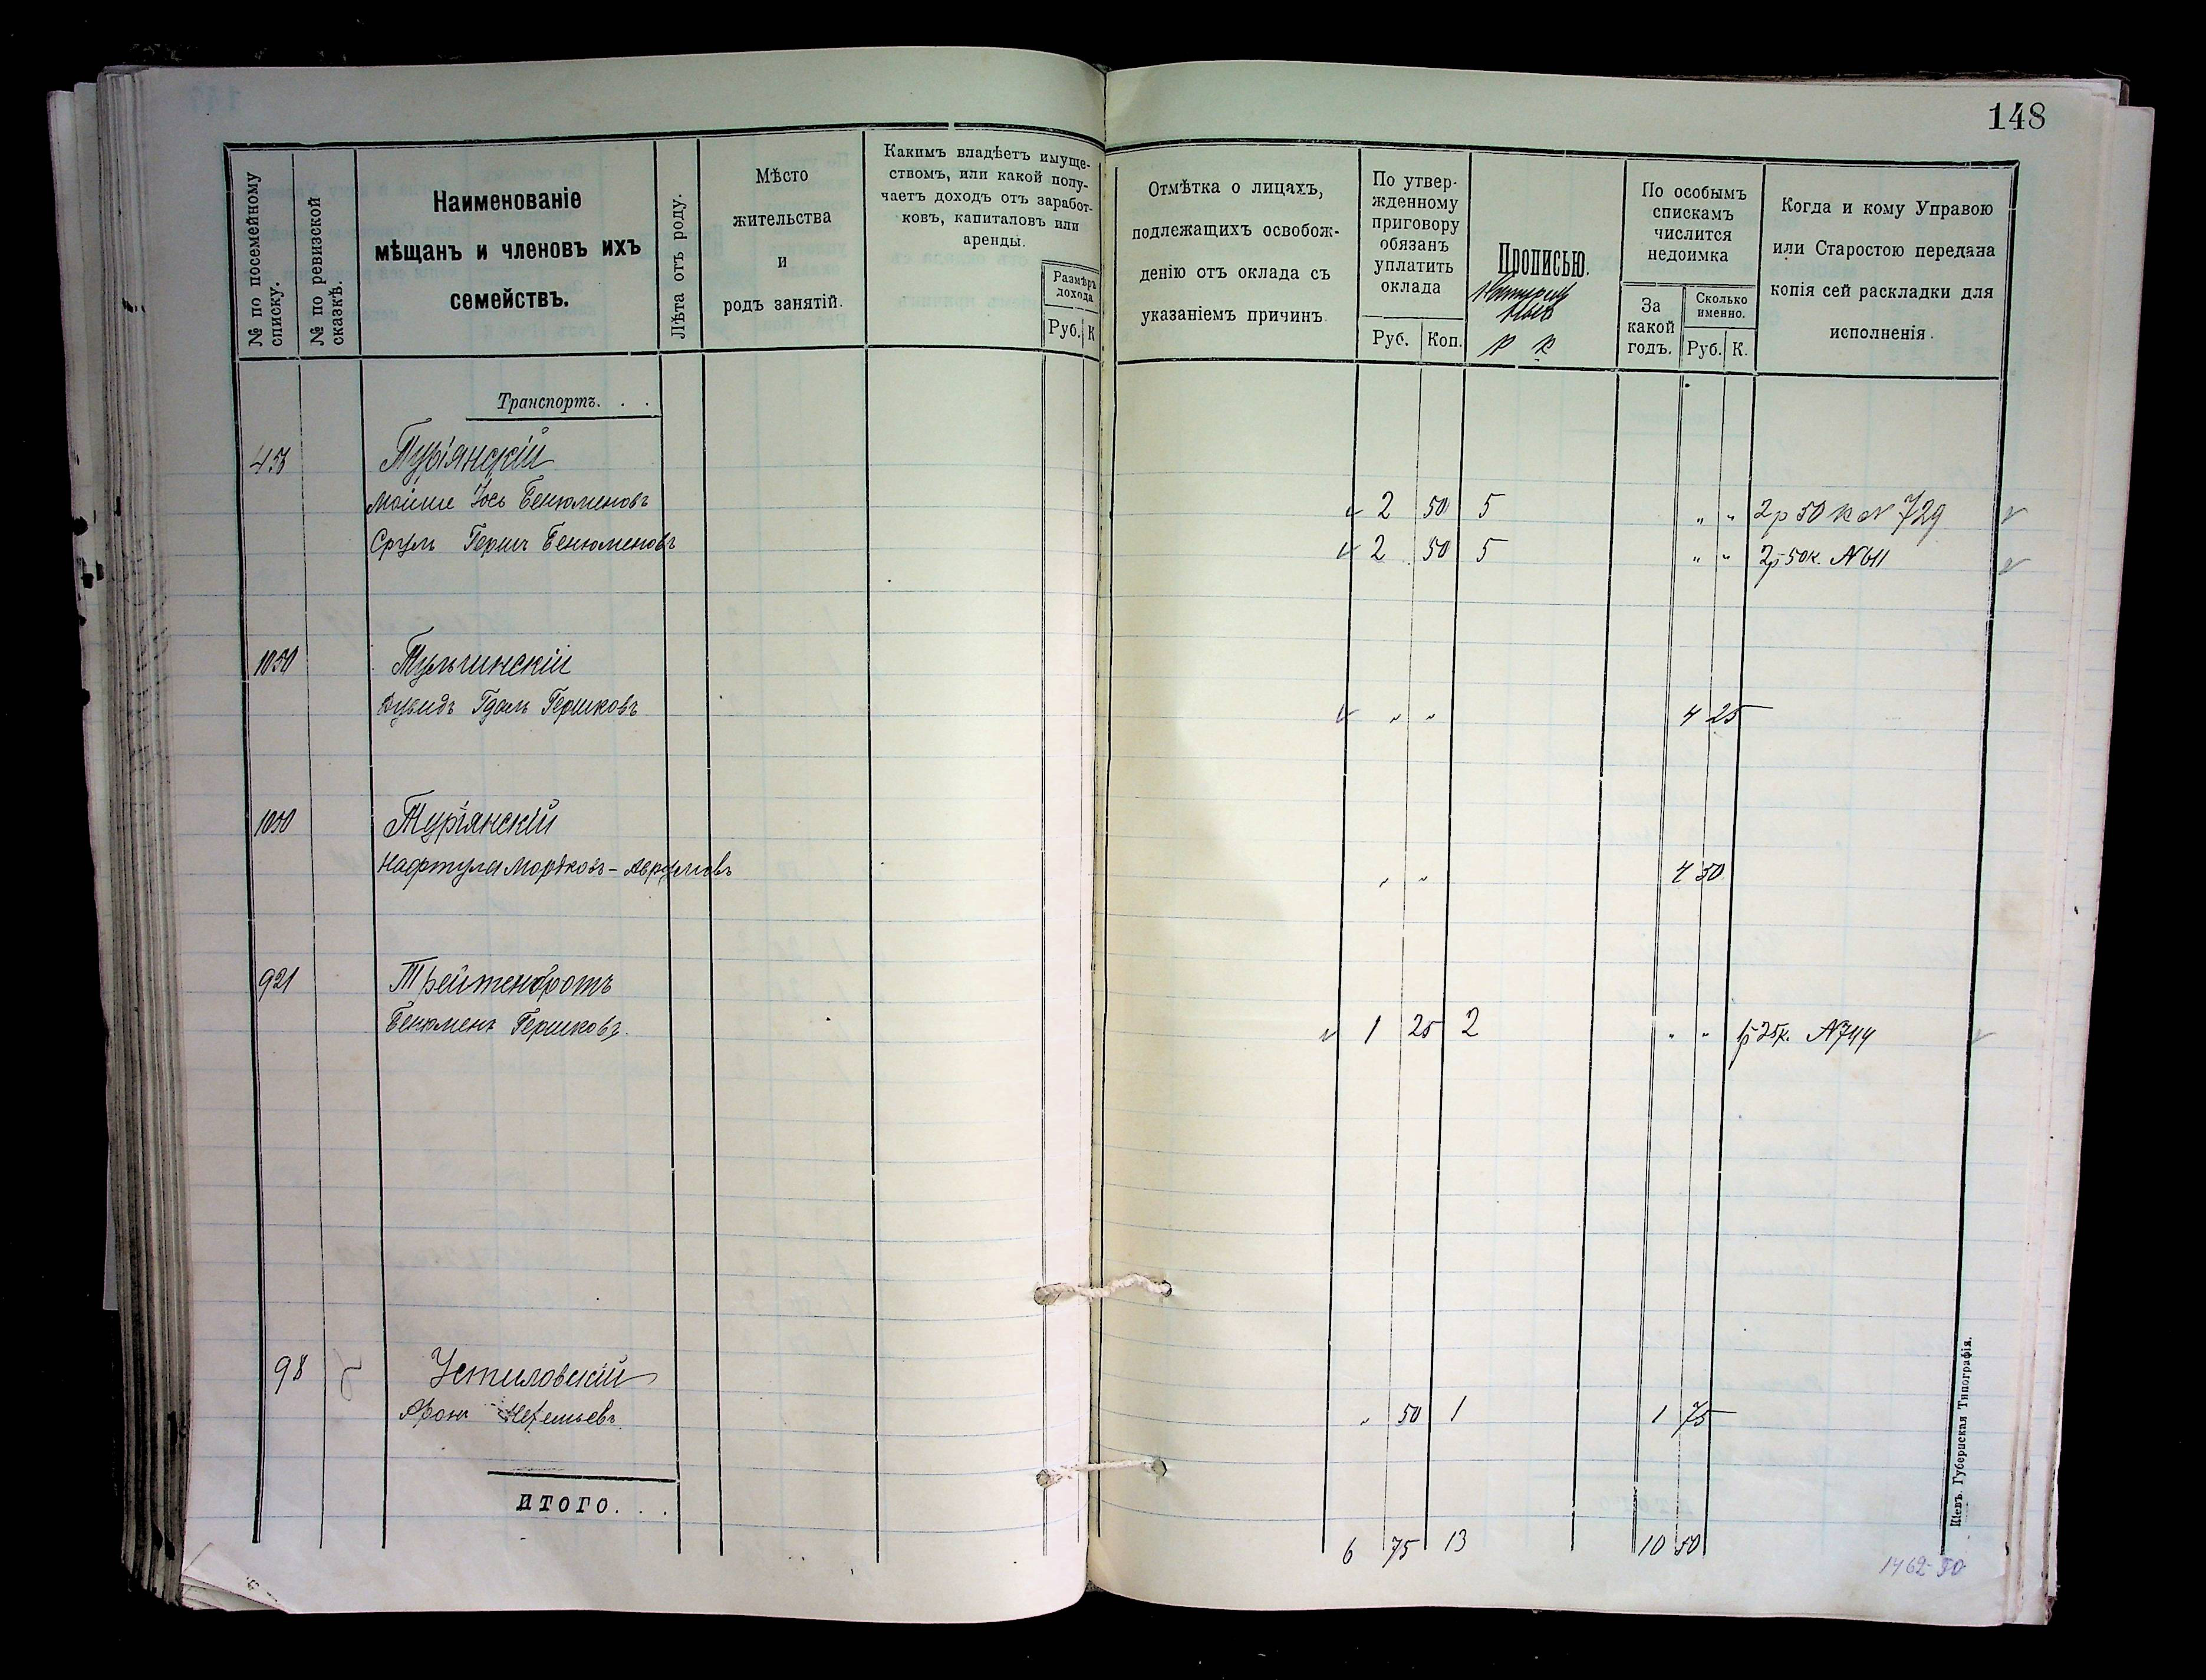 148
№ по посемейному списку.
№ по ревизской сказкѣ.
Наименованіе
мѣщанъ и членовъ ихъ
семействъ.
Лѣта отъ роду.
Мѣсто
жительства
и
родъ занятій.
Какимъ владѣетъ имуще-
ствомъ, или какой полу-
чаетъ доходъ отъ заработ-
ковъ, капиталовъ или
аренды.
Размѣръ
дохода
Руб. К
Отмѣтка о лицахъ,
подлежащихъ освобож-
денію отъ оклада съ
указаніемъ причинъ
По утвер-
жденному
приговору
обязанъ
уплатить
оклада
Руб. Коп.
Прописью.
Р К
По особымъ
спискамъ
числится
недоимка
За
какой
годъ.
Сколько
именно.
Руб. К.
Когда и кому Управою
или Старостою передана
копія сей раскладки для
исполненія.
Транспортъ. . .
453 Туріянскій
Мойше Іось Бенюменовъ 2 50 5 „ „ 2р 50к № 729
Срулъ Гершъ Бенюменовъ 2 50 5 „ „ 2р 50к. № 611
1050 Тульчинскій
Дувидъ Гдаль Гершковъ „ „ 4 25
1050 Туріянскій
Нафтула Мордковъ-Аврумовъ „ „ 4 50
921 Трейтенбротъ
Бенюменъ Гершковъ. 1 25 2 „ „ 1р 25к. № 744
98 Устиловскій
Аронъ „ 50 1 1 75
ИТОГО. . .
6 75 13 10 50
1462-50
Кіевъ. Губернская Типографія.